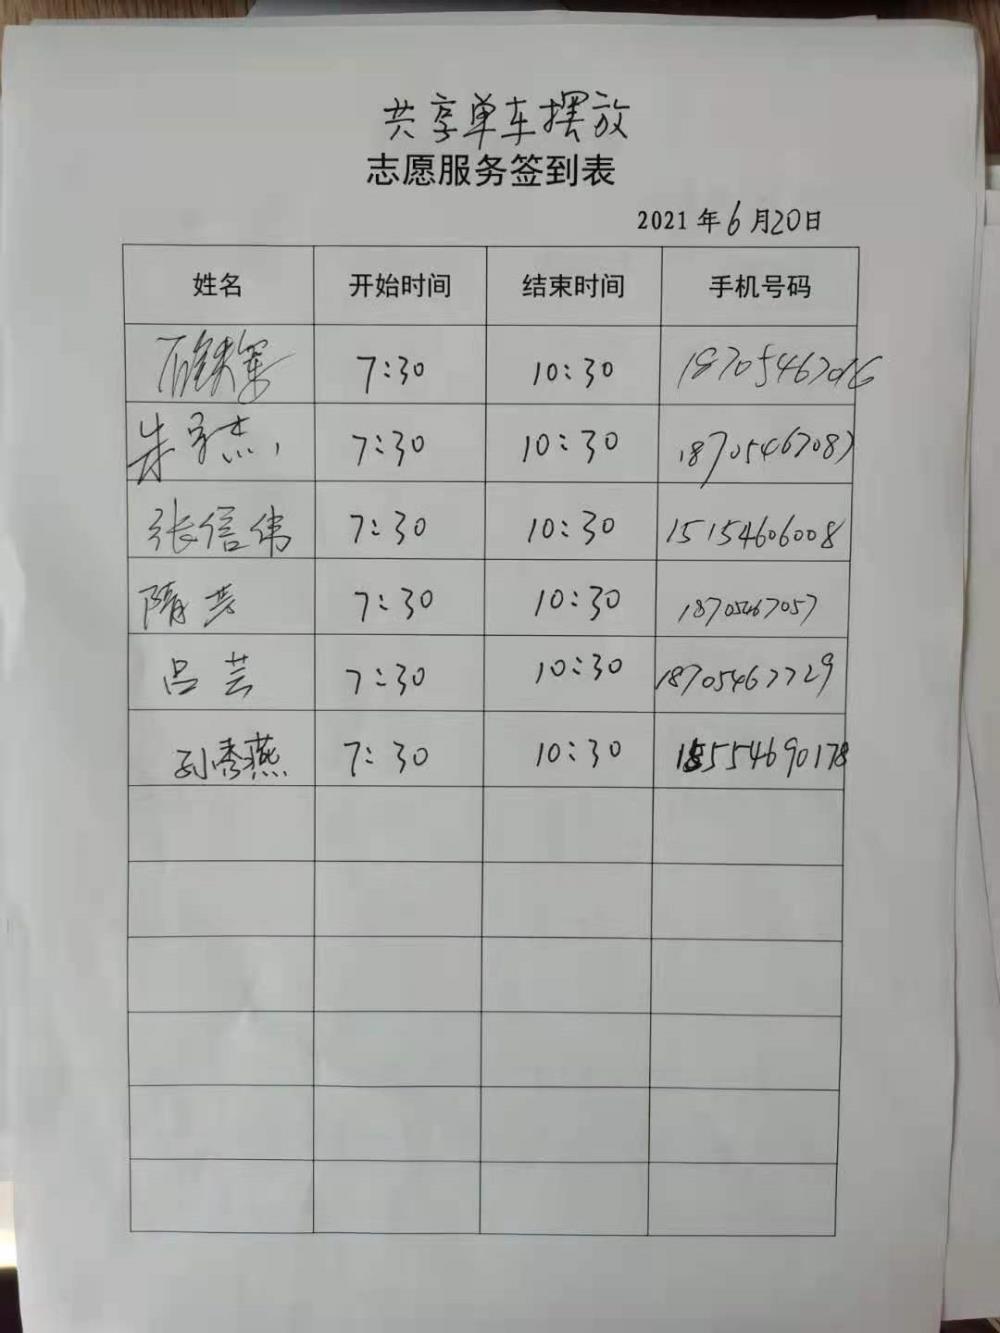 共享单车摆放
志愿服务签到表
2021年6月20日
姓名 开始时间 结束时间 手机号码
7:30 10:30
朱 杰 7:30 10:30 18705467087
张信伟 7:30 10:30 15154606008
隋芸 7:30 10:30 18705467057
吕芸 7:30 10:30 18705467729
孙秀燕 7:30 10:30 15554690178